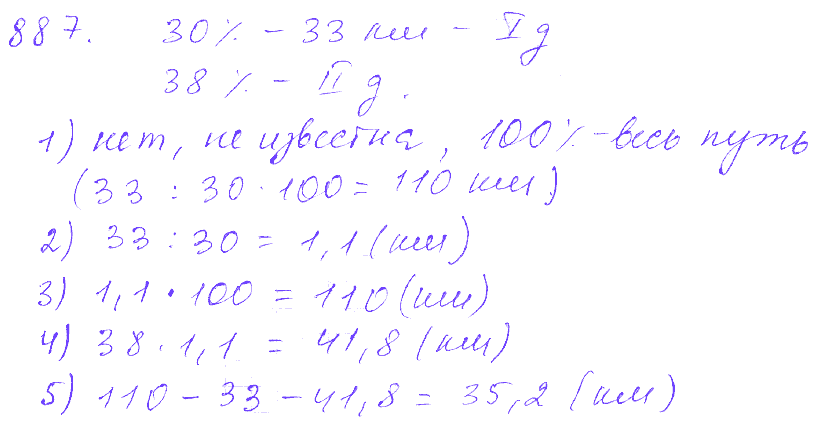 887. 30% - 33 км - I д
38% - II д.
1) нет, не известна, 100% - весь путь
(33 : 30 · 100 = 110 км)
2) 33 : 30 = 1,1 (км)
3) 1,1 · 100 = 110 (км)
4) 38 · 1,1 = 41,8 (км)
5) 110 - 33 - 41,8 = 35,2 (км)